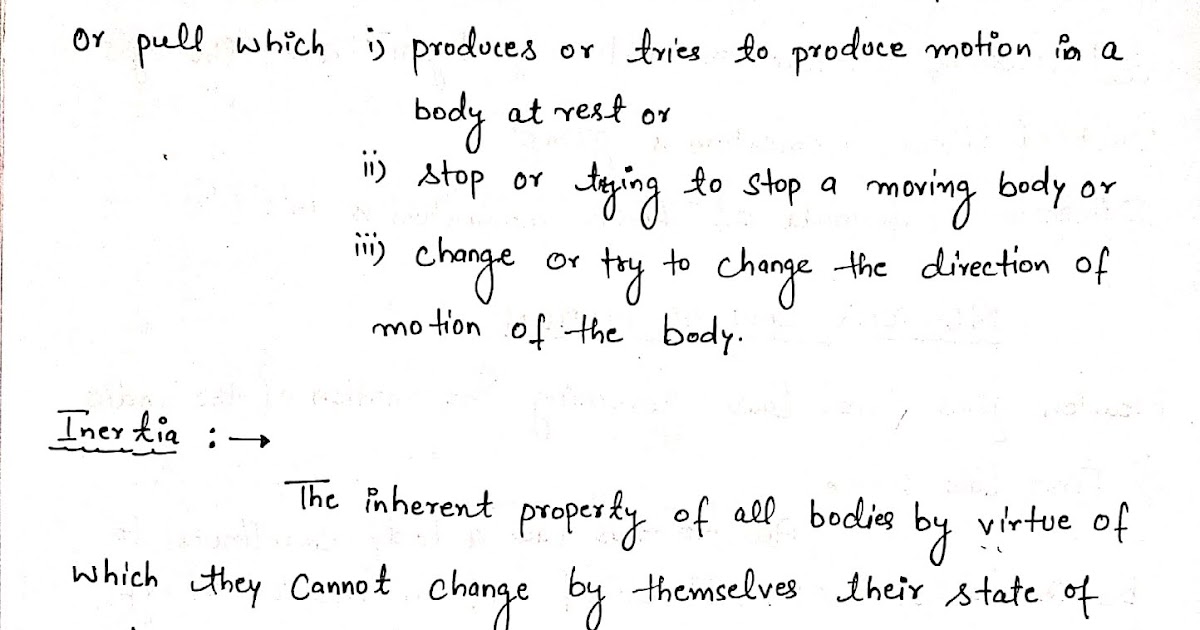 or pull which i) produces or tries to produce motion in a
body at rest or
ii) stop or trying to stop a moving body or
iii) change or try to change the direction of
motion of the body.
Inertia :→
The inherent property of all bodies by virtue of
which they cannot change by themselves their state of